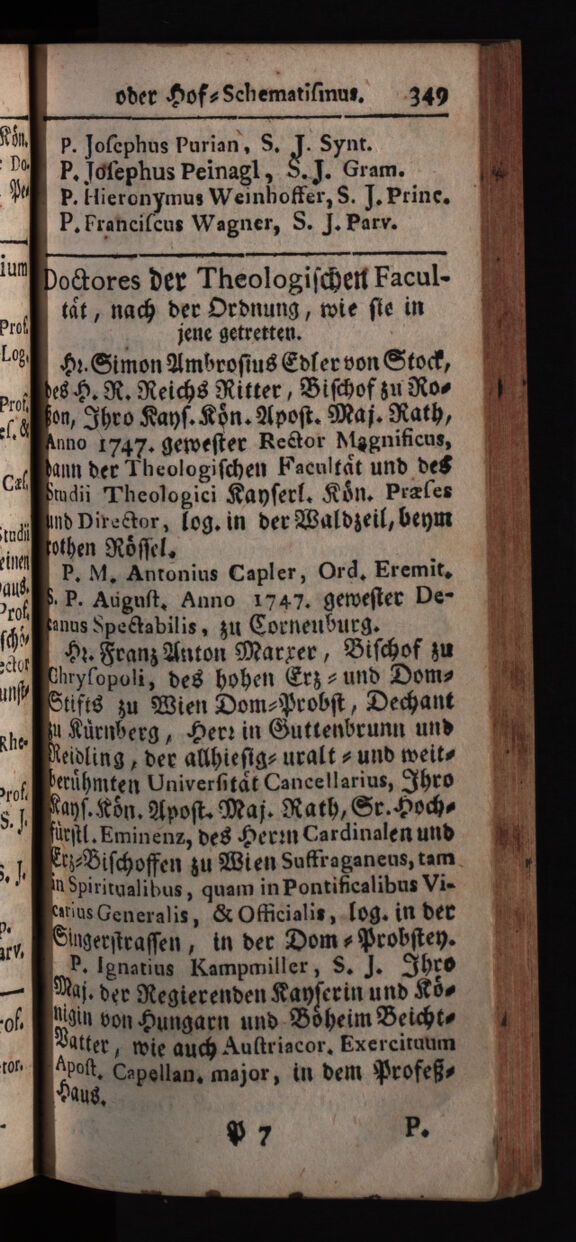 oder Hof-Schematismus. 349
P. Josephus Purian, S. J. Synt.
P. Josephus Peinagl, S. J. Gram.
P. Hieronymus Weinhoffer, S. J. Princ.
P. Franciscus Wagner, S. J. Parv.
Doctores der Theologischen Facul-
tät, nach der Ordnung, wie sie in
jene getretten.
Hr. Simon Ambrosius Edler von Stock,
des H. R. Reichs Ritter, Bischof zu Ro-
son, Ihro Kays. Kön. Apost. Maj. Rath,
Anno 1747. gewester Rector Magnificus,
dann der Theologischen Facultät und des
Studii Theologici Kayserl. Kön. Præses
und Director, log. in der Waldzeil, beym
rothen Rössel.
P. M. Antonius Capler, Ord. Eremit.
S. P. August. Anno 1747. gewester De-
canus Spectabilis, zu Corneuburg.
Hr. Franz Anton Marxer, Bischof zu
Chrysopoli, des hohen Erz- und Dom-
Stifts zu Wien Dom-Probst, Dechant
zu Kürnberg, Herr in Guttenbrunn und
Neidling, der allhiesig-uralt- und weit-
berühmten Universität Cancellarius, Ihro
Kays. Kön. Apost. Maj. Rath, Sr. Hoch-
fürstl. Eminenz, des Herrn Cardinalen und
Erz-Bischoffen zu Wien Suffraganeus, tam
in Spiritualibus, quam in Pontificalibus Vi-
carius Generalis, & Officialis, log. in der
Singerstrassen, in der Dom-Probstey.
P. Ignatius Kampmiller, S. J. Ihro
Maj. der Regierenden Kayserin und Kö-
nigin von Hungarn und Böheim Beicht-
Vatter, wie auch Austriacor. Exercituum
Apost. Capellan. major, in dem Profeß-
Haus.
P 7 P.